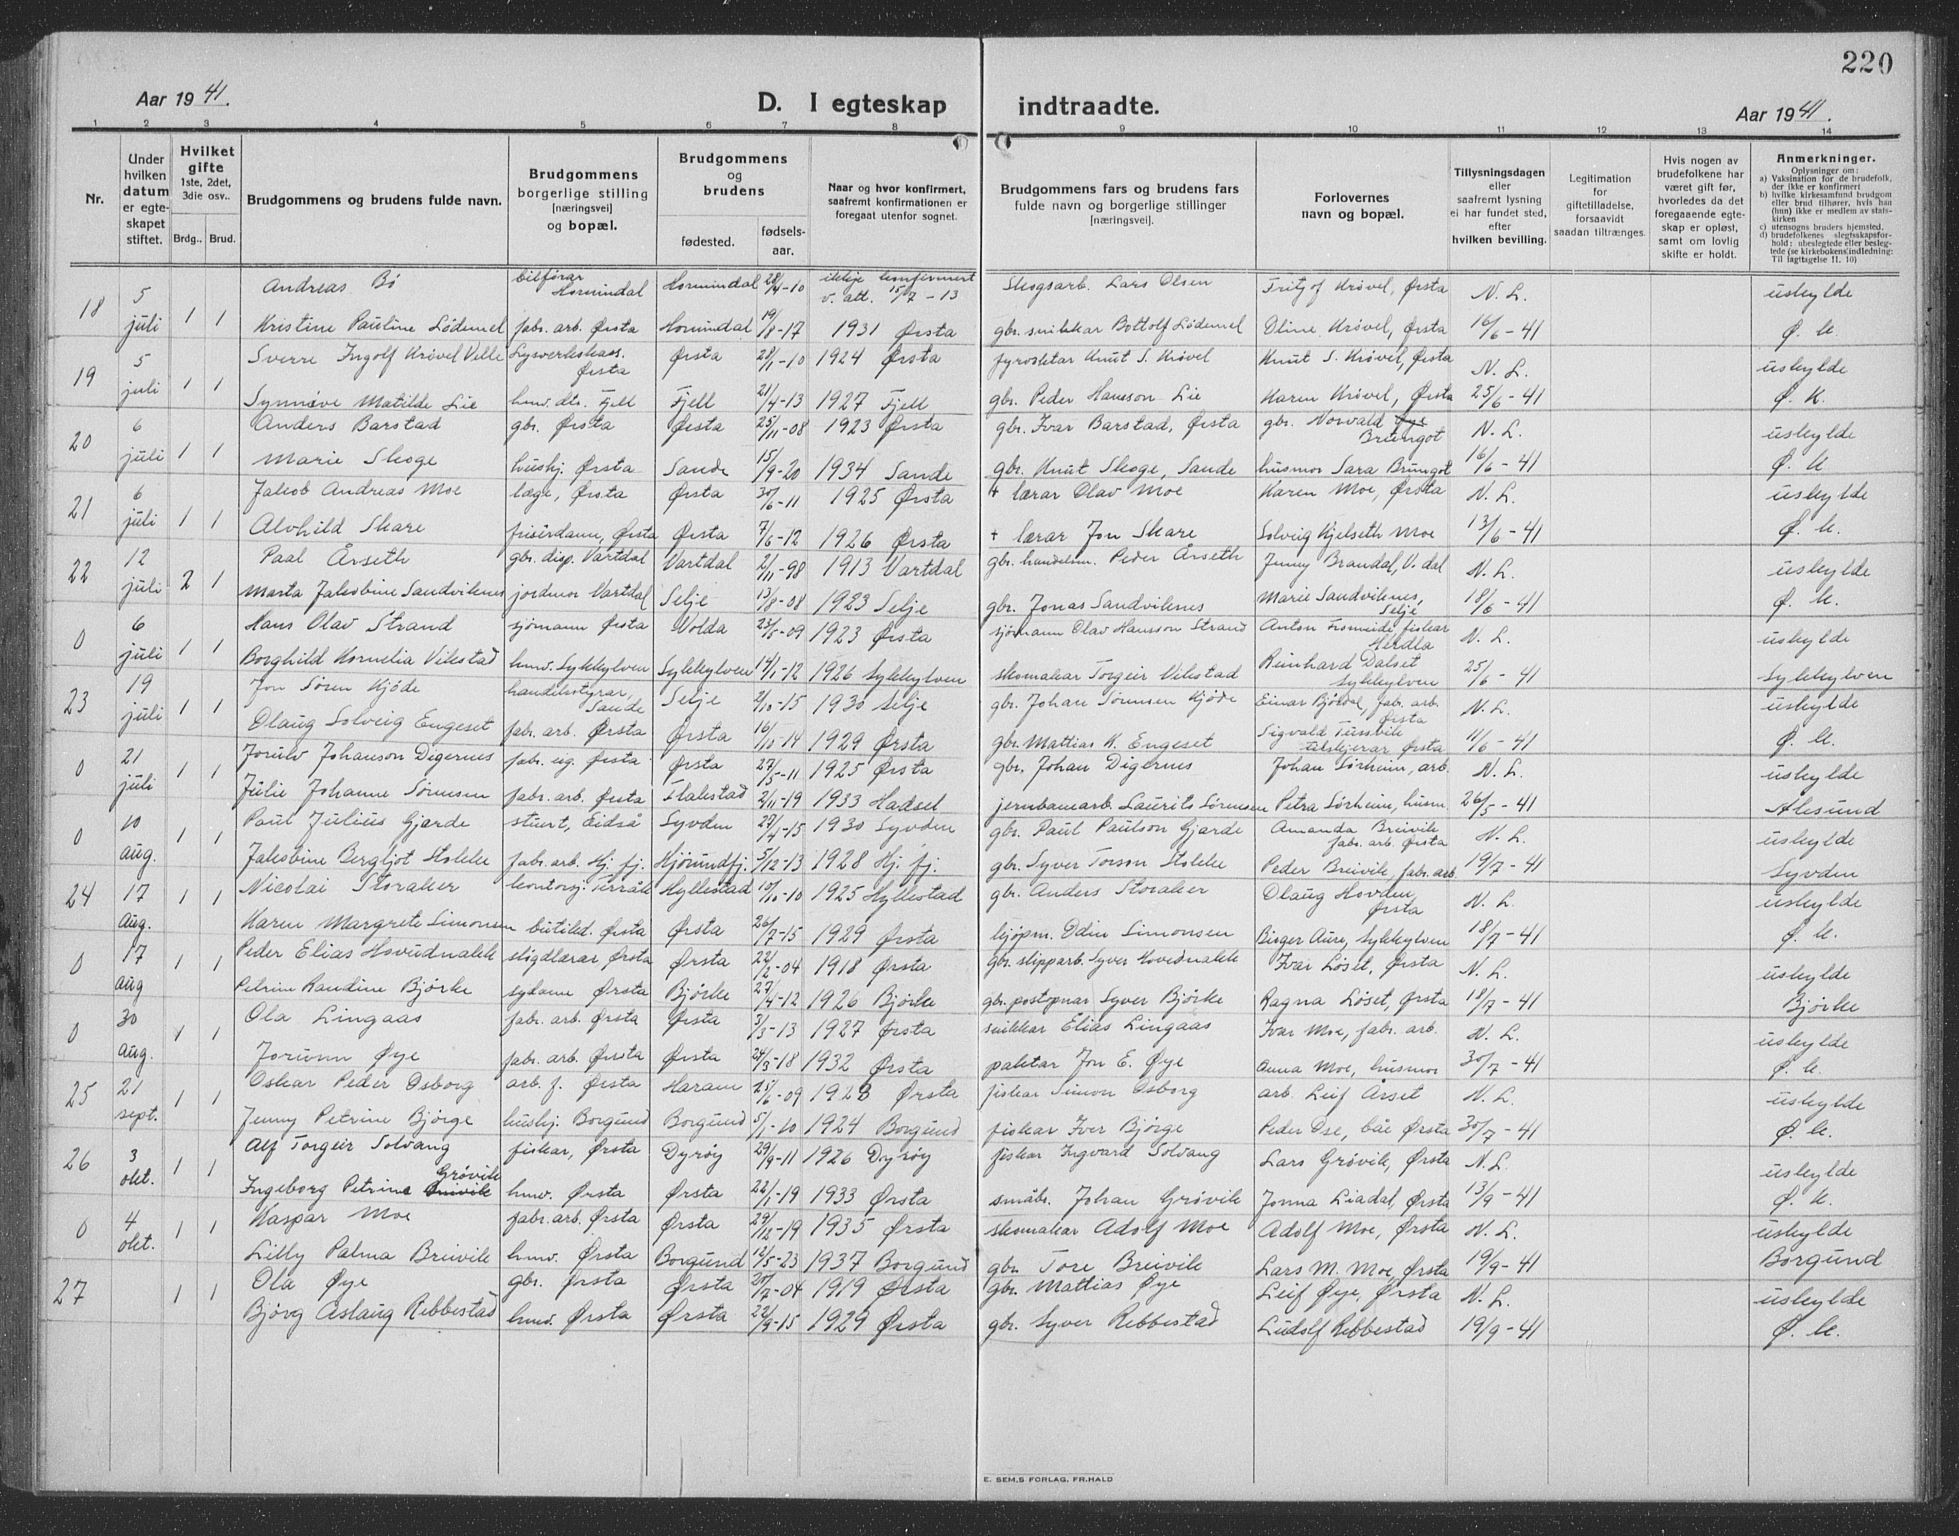 220
Aar 19 41.
D. I egteskap indtraadte.
Aar 19 41.
1 2 3 4 5 6 7 8 9 10 11 12 13 14
Nr.
Under hvilken datum er egteskapet stiftet.
Hvilket gifte 1ste, 2det, 3die osv..
Brdg.. Brud.
Brudgommens og brudens fulde navn.
Brudgommens borgerlige stilling [næringsvei] og bopæl.
Brudgommens og brudens
fødested. fødselsaar.
Naar og hvor konfirmert, saafremt konfirmationen er foregaat utenfor sognet.
Brudgommens fars og brudens fars fulde navn og borgerlige stillinger [næringsvei].
Forlovernes navn og bopæl.
Tillysningsdagen eller saafremt lysning ei har fundet sted, efter hvilken bevilling.
Legitimation for giftetilladelse, forsaavidt saadan tiltrænges.
Hvis nogen av brudefolkene har været gift før, hvorledes da det foregaaende egteskap er opløst, samt om lovlig skifte er holdt.
Anmerkninger.
Oplysninger om:
a) Vaksination for de brudefolk, der ikke er konfirmert
b) hvilke kirkesamfund brudgom eller brud tilhører, hvis han (hun) ikke er medlem av statskirken
c) utensogns bruders hjemsted.
d) brudefolkenes slegtsskapsforhold: ubeslegtede eller beslegtede (se kirkebokens indledning: Til iagttagelse II. 10)
18 5 juli 1 1 Andreas Bø bilførar Hornindal Hornindal 28/4-10 ikkje konfirmert v. att. 15/7-13 Skogsarb. Lars Olsen Fritjof Krøvel, Ørsta N. L. uskylde
Kristine Pauline Lødemel fabr. arb. Ørsta Hornindal 19/8-17 1931 Ørsta gbr. snikkar Bottolf Lødemel Oline Krøvel, Ørsta 16/6-41 Ø. K.
19 5 juli 1 1 Sverre Ingolf Krøvel Velle Lysverkskass. Ørsta Ørsta 28/1-10 1924 Ørsta fyrvaktar Knut S. Krøvel Knut S. Krøvel, Ørsta N. L. uskylde
Synnøve Matilde Lie hmv. dtr. Fjell Fjell 21/4-13 1927 Fjell gbr. Peder Hansson Lie Karen Krøvel, Ørsta 25/6-41 Ø. K.
20 6 juli 1 1 Anders Barstad gbr. Ørsta Ørsta 25/11-08 1923 Ørsta gbr. Ivar Barstad, Ørsta gbr. Norvald Brungot N. L. uskylde
Marie Skoge hushj. Ørsta Sande 15/9-20 1934 Sande gbr. Knut Skoge, Sande husmor Sara Brungot 16/6-41 Ø. K.
21 6 juli 1 1 Jakob Andreas Moe læge, Ørsta Ørsta 30/6-11 1925 Ørsta + lærar Olav Moe Karen Moe, Ørsta N. L. uskylde
Alvhild Skare frisørdame, Ørsta Ørsta 7/6-12 1926 Ørsta + lærar Jon Skare Solveig Kjelseth Moe 13/6-41 Ø. K.
22 12 juli 2 1 Paal Årseth gbr. disp. Vartdal Vartdal 2/11-98 1913 Vartdal gbr. handelsm. Peder Årseth Jenny Brandal, V.dal N. L. uskylde
Marta Jakobine Sandviknes jordmor Vartdal Selje 13/8-08 1923 Selje gbr. Jonas Sandviknes Marie Sandviknes, Selje 18/6-41 Ø. K.
0 6 juli 1 1 Hans Olav Strand sjømann Ørsta Volda 23/5-09 1923 Ørsta sjømann Olav Hansson Strand Anton fiskar Herdla N. L. uskylde
Borghild Kornelia Vikstad hmv. Sykkylven Sykkylven 14/1-12 1926 Sykkylven skomakar Torgeir Vikstad Reinhard Dalset Sykkylven 25/6-41 Sykkylven
23 19 juli 1 1 Jon Søren Kjøde handelsstyrar, Sande Selje 2/10-15 1930 Selje gbr. Johan Sørensen Kjøde Einar Bjørdal, fab. arb. Ørsta N. L. uskylde
Olaug Solveig Engeset fab. arb. Ørsta Ørsta 16/10-14 1929 Ørsta gbr. Mattias K. Engeset Sigvald Tussvik tilskjerar Ørsta 11/6-41 Ø. K.
0 21 juli 1 1 Jorulv Johanson Digernes fabr. eig. Ørsta Ørsta 27/5-11 1925 Ørsta gbr. Johan Digernes Johan Sørheim, arb. N. L. uskylde
Julie Johanne Sørensen fabr. arb. Ørsta Flakstad 2/11-19 1933 Hadsel jernbanearb. Laurits Sørensen Petra Sørheim, husm. 26/5-41 Ålesund
0 10 aug. 1 1 Paul Julius Gjærde stuert, Eidså Syvden 27/4-15 1930 Syvden gbr. Paul Paulson Gjærde Amanda Breivik fabr. arb. Ørsta N. L. uskylde
Jakobine Bergljot Stokke fabr. arb. Hj. fj. Hjørundfj. 5/12-13 1928 Hj. fj. gbr. Syver Torson Stokke Peder Breivik, fabr. arb. 19/7-41 Syvden
24 17 aug. 1 1 Nicolai Storaker kontorsj. Terråk Hyllestad 10/10-10 1925 Hyllestad gbr. Anders Storaker Olaug Hovden, Ørsta N. L. uskylde
Karen Margrete Simonsen butikd. Ørsta Ørsta 26/7-15 1929 Ørsta kjøpm. Odin Simonsen Birger Aure, Sykkylven 18/7-41 Ø. K.
0 17 aug 1 1 Peder Elias Hovudnakk sløgdlærar Ørsta Ørsta 22/2-04 1918 Ørsta gbr. slipparb. Syver Hovednakk Ivar Løset, Ørsta N. L. uskylde
Petrine Randine Bjørke sydame Ørsta Bjørke 27/4-12 1926 Bjørke gbr. postopnar Syver Bjørke Ragna Løset, Ørsta 18/7-41 Bjørke
0 30 aug. 1 1 Ola Lingaas fabr. arb. Ørsta Ørsta 3/3-13 1927 Ørsta snikkar Elias Lingaas Ivar Moe, fabr. arb. N. L. uskylde
Jorunn Øye fabr. arb. Ørsta Ørsta 24/3-18 1932 Ørsta paktar Jon E. Øye Anna Moe, husmor 30/7-41 Ø. K.
25 21 sept. 1 1 Oskar Peder Osborg arb. f. Ørsta Haram 25/6-09 1923 Ørsta fiskar Simon Osborg arb. Leif Årset N. L. uskylde
Jenny Petrine Bjørge hushj. Borgund Borgund 5/1-10 1924 Borgund fiskar Iver Bjørge Peder Ose, båe Ørsta 30/7-41 Ø. K.
26 3 okt. 1 1 Alf Torgeir Solvang fiskar, Ørsta Dyrøy 29/9-11 1926 Dyrøy fiskar Ingvard Solvang Lars Grøvik, Ørsta N. L. uskylde
Ingeborg Petrine Grøvik hmv. Ørsta Ørsta 22/1-19 1933 Ørsta småbr. Johan Grøvik Jonna Liadal, Ørsta 13/9-41 Ø. K.
0 4 okt. 1 1 Kaspar Moe fabr. arb. Ørsta Ørsta 29/12-19 1935 Ørsta skomakar Adolf Moe Adolf Moe, Ørsta N. L. uskylde
Lilly Palma Breivik hmv. Ørsta Borgund 12/5-23 1937 Borgund gbr. Tore Breivik Lars M. Moe, Ørsta 19/9-41 Borgund
27 1 1 Ola Øye gbr. Ørsta Ørsta 20/7-04 1919 Ørsta gbr. Mattias Øye Leif Øye, Ørsta N. L. uskylde
Bjørg Aslaug Ribbestad hmv. Ørsta Ørsta 22/9-15 1929 Ørsta gbr. Syver Ribbestad Ludolf Ribbestad 19/9-41 Ø. K.
E. SEM,S FORLAG, FR.HALD